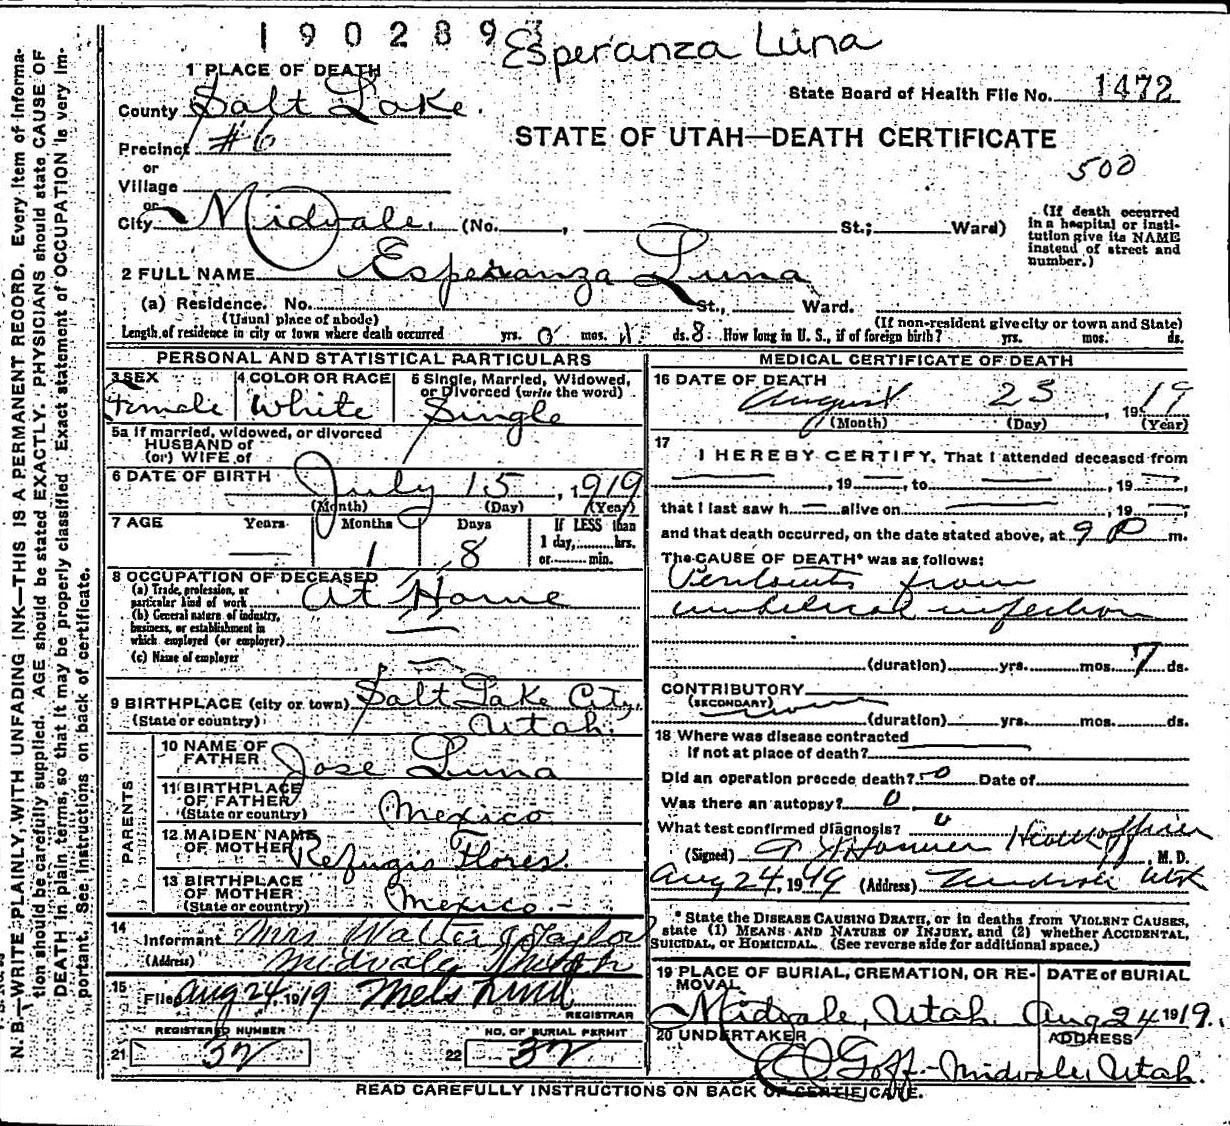 1902893
Esperanza Luna
1 PLACE OF DEATH
County Salt Lake.
State Board of Health File No. 1472
STATE OF UTAH—DEATH CERTIFICATE
Precinct #6
500
or
Village
or
City Midvale. (No. , St.; Ward)
(If death occurred in a hospital or institution give its NAME instead of street and number.)
2 FULL NAME Esperanza Luna
(a) Residence. No. St., Ward.
(Usual place of abode)
(If non-resident give city or town and State)
Length of residence in city or town where death occurred yrs. 0 mos. 1 ds. 8. How long in U. S., if of foreign birth? yrs. mos. ds.
PERSONAL AND STATISTICAL PARTICULARS
3 SEX Female
4 COLOR OR RACE White
5 Single, Married, Widowed, or Divorced (write the word) Single
5a If married, widowed, or divorced
HUSBAND of
(or) WIFE of
6 DATE OF BIRTH July 15, 1919
(Month) (Day) (Year)
7 AGE Years — Months 1 Days 8 If LESS than 1 day, hrs. or min.
8 OCCUPATION OF DECEASED
(a) Trade, profession, or particular kind of work At Home
(b) General nature of industry, business, or establishment in which employed (or employer)
(c) Name of employer
9 BIRTHPLACE (city or town) Salt Lake City,
(State or country) Utah.
PARENTS
10 NAME OF FATHER Jose Luna
11 BIRTHPLACE OF FATHER
(State or country) Mexico
12 MAIDEN NAME OF MOTHER Refugio Flores.
13 BIRTHPLACE OF MOTHER
(State or country) Mexico.-
14
Informant Mrs Walter J Taylor
(Address) Midvale Utah
15
Filed Aug 24, 1919
REGISTRAR
REGISTERED NUMBER
21 32
NO. OF BURIAL PERMIT
22 32
MEDICAL CERTIFICATE OF DEATH
16 DATE OF DEATH
August 23, 1919
(Month) (Day) (Year)
17
I HEREBY CERTIFY, That I attended deceased from
—, 19—, to —, 19—,
that I last saw h— alive on —, 19—,
and that death occurred, on the date stated above, at 9 P m.
The CAUSE OF DEATH* was as follows:
Peritonitis from
umbilical infection
(duration) yrs. mos. 7 ds.
CONTRIBUTORY
(SECONDARY)
(duration) yrs. mos. ds.
18 Where was disease contracted
if not at place of death?
Did an operation precede death? 0 Date of
Was there an autopsy? 0
What test confirmed diagnosis? 0
(Signed) Health officer, M. D.
Aug 24, 1919 (Address) Midvale Utah
* State the DISEASE CAUSING DEATH, or in deaths from VIOLENT CAUSES, state (1) MEANS AND NATURE OF INJURY, and (2) whether ACCIDENTAL, SUICIDAL, or HOMICIDAL. (See reverse side for additional space.)
19 PLACE OF BURIAL, CREMATION, OR REMOVAL
Midvale, Utah.
DATE of BURIAL
Aug 24 1919.
20 UNDERTAKER
Goff-
ADDRESS
Midvale, Utah.
READ CAREFULLY INSTRUCTIONS ON BACK OF CERTIFICATE.
N. B.—WRITE PLAINLY, WITH UNFADING INK—THIS IS A PERMANENT RECORD. Every item of information should be carefully supplied. AGE should be stated EXACTLY. PHYSICIANS should state CAUSE OF DEATH in plain terms, so that it may be properly classified. Exact statement of OCCUPATION is very important. See instructions on back of certificate.